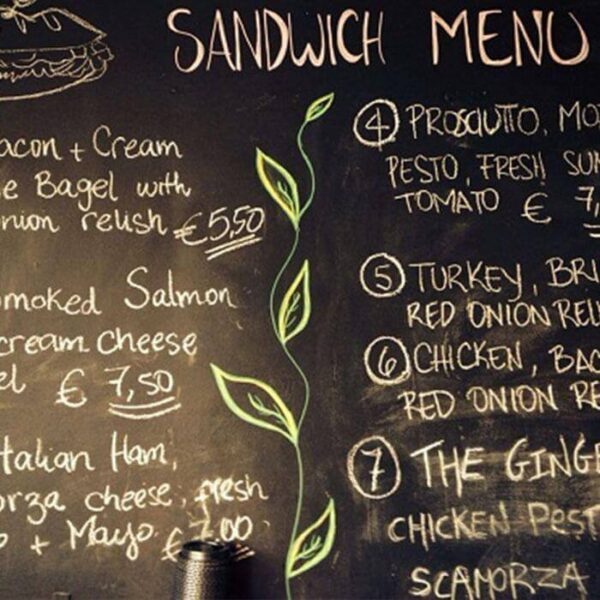 SANDWICH MENU
acon + Cream
se Bagel with
nion relish €5,50
moked Salmon
cream cheese
el € 7,50
talian Ham,
orza cheese, fresh
o + Mayo. €7.00
4 PROSCIUTTO, MO
PESTO, FRESH SUN
TOMATO € 7,
5 TURKEY, BRI
RED ONION REL
6 CHICKEN, BAC
RED ONION RE
7 THE GINGE
CHICKEN PEST
SCAMORZA